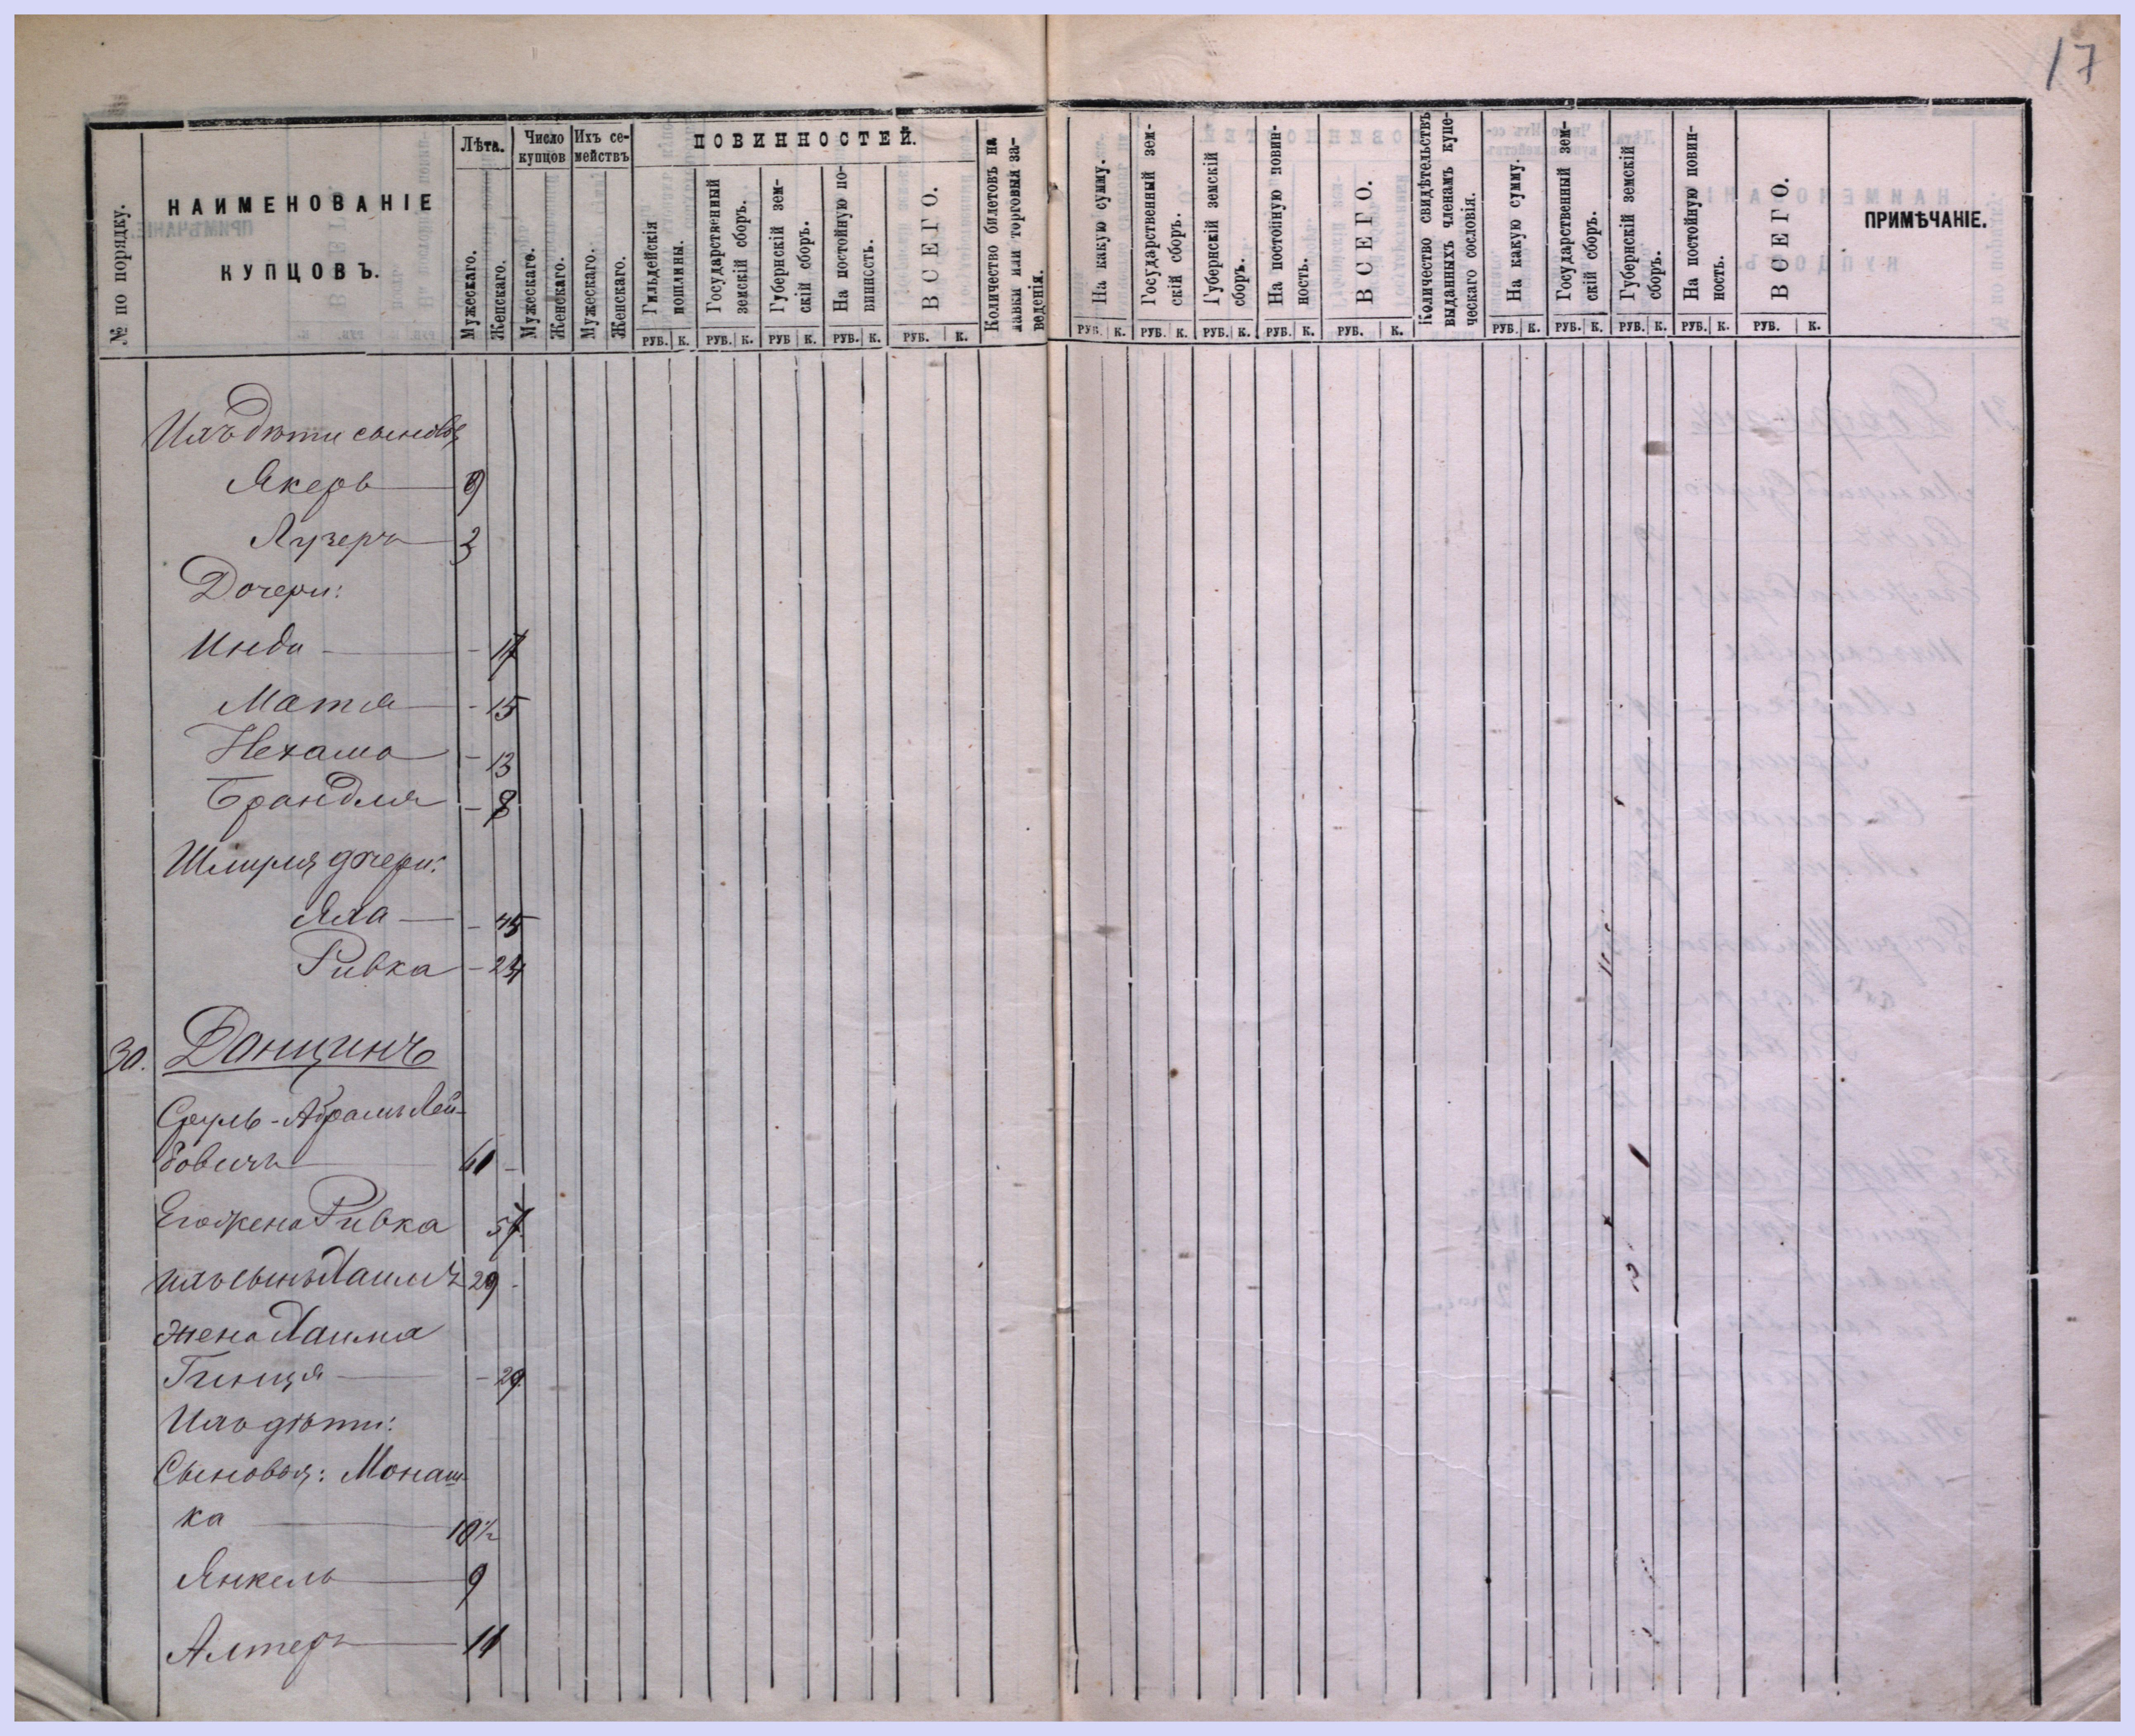 17
№ по порядку.
НАИМЕНОВАНІЕ
КУПЦОВЪ.
Лѣта.
Мужескаго.
Женскаго.
Число
купцовъ
Мужескаго.
Женскаго.
Ихъ се-
мействъ
Мужескаго.
Женскаго.
ПОВИННОСТЕЙ.
Гильдейскія
пошлины.
РУБ. К.
Государственный
земскій сборъ.
РУБ. К.
Губернскій зем-
скій сборъ.
РУБ К.
На постойную по-
винность.
РУБ. К.
ВСЕГО.
РУБ. К.
Количество билетовъ на
лавки или торговыя за-
веденія.
На какую сумму.
РУБ. К.
Государственный зем-
скій сборъ.
РУБ. К.
Губернскій земскій
сборъ.
РУБ. К.
На постойную повин-
ность.
РУБ. К.
ВСЕГО.
РУБ. К.
Количество свидѣтельствъ
выданныхъ членамъ купе-
ческаго сословія.
На какую сумму.
РУБ. К.
Государственный зем-
скій сборъ.
РУБ. К.
Губернскій земскій
сборъ.
РУБ. К.
На постойную повин-
ность.
РУБ. К.
ВСЕГО.
РУБ. К.
ПРИМѢЧАНІЕ.
Ихъ дѣти сыновья
Якеръ 9
Лузеръ 3
Дочери:
Инда - 17
Матля - 15
Нехама - 13
Брандля - 8
Шмуля дочери:
Яха -
Ривка - 24
30. Данцинъ
Сруль-Абрамъ Лей-
бовичъ -
Его жена Ривка 57
Ихъ сынъ Хаимъ 29 -
жена Хаима
Гинця - 29
Ихъ дѣти:
Сыновья: Монаш-
ка 10½
Янкель 9
Алтеръ 11